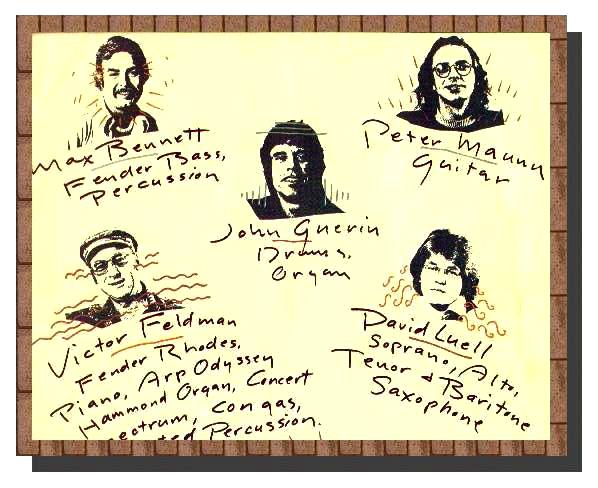 Max Bennett
Fender Bass,
Percussion
Peter Maunu
Guitar
John Guerin
Drums,
Organ
Victor Feldman
Fender Rhodes,
Piano, Arp Odyssey
Hammond Organ, Concert
congas,
Percussion.
David Luell
Soprano, Alto,
Tenor & Baritone
Saxophone